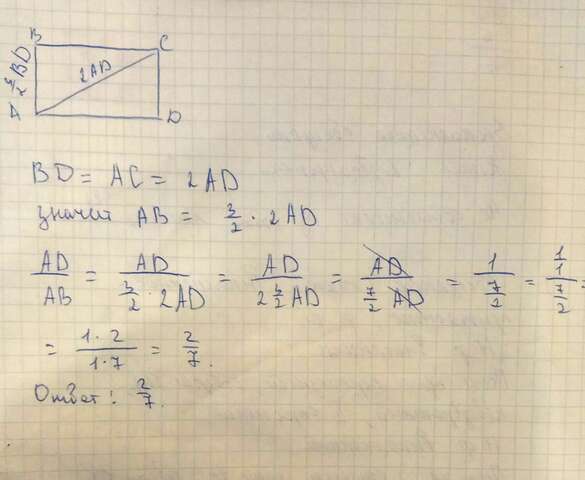 B C
3/2 BD 2AD
A D
BD = AC = 2AD
значит AB = 3/2 · 2AD
AD/AB = AD/(3/2 · 2AD) = AD/(2 3/2 AD) = AD/(7/2 AD) = 1/(7/1) = (1/1)/(7/2) =
= (1·2)/(1·7) = 2/7.
Ответ: 2/7.